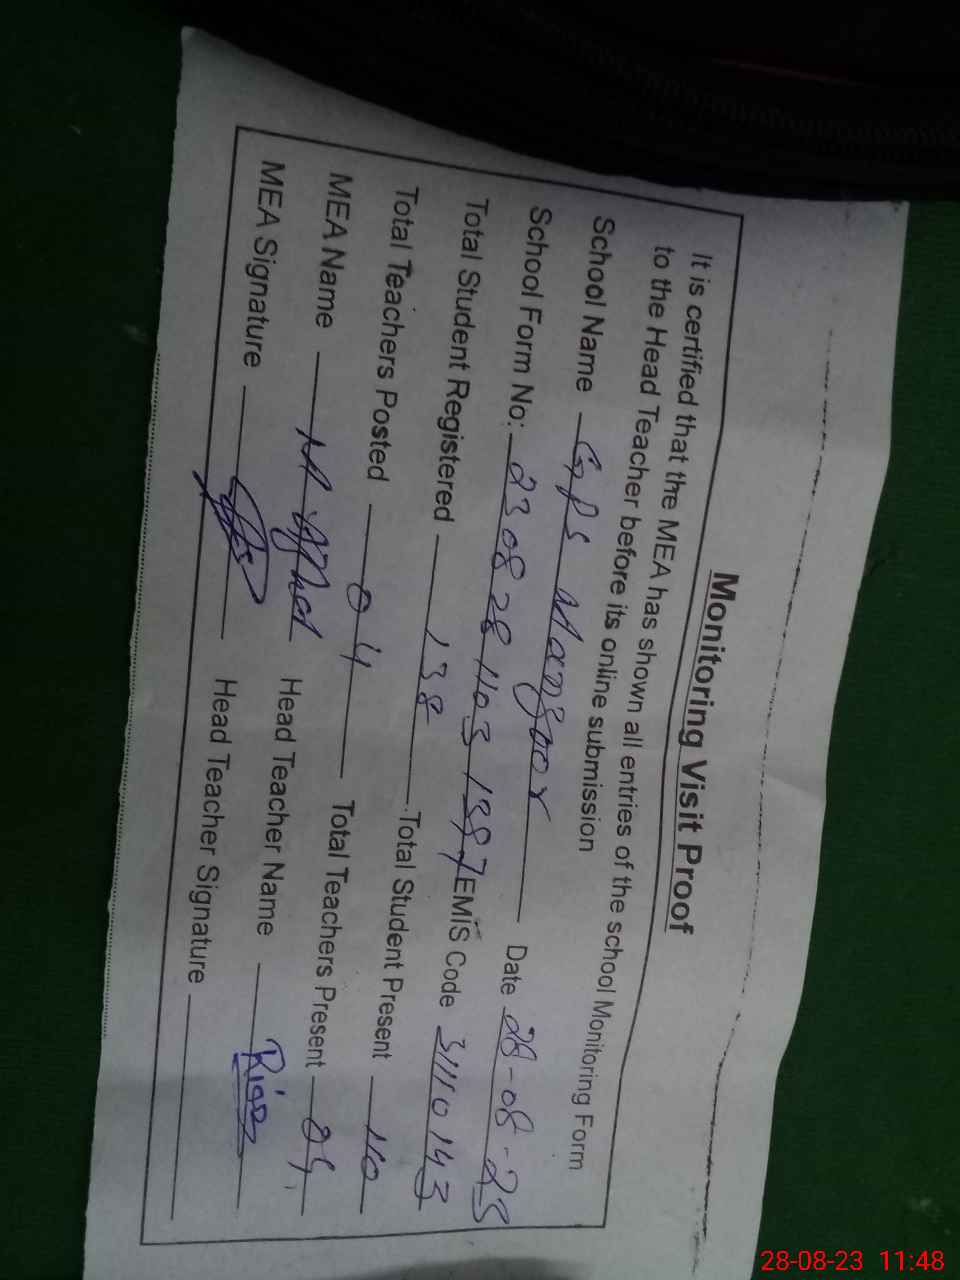 Monitoring Visit Proof
It is certified that the MEA has shown all entries of the school Monitoring Form
to the Head Teacher before its online submission
School Name GPS Mangoor Date 28-08-23
School Form No: 23 08 28 1103 1387 EMIS Code 31110143
Total Student Registered 138 Total Student Present 110
Total Teachers Posted 04 Total Teachers Present 04
MEA Name M Head Teacher Name Riaz
MEA Signature Head Teacher Signature
28-08-23 11:48